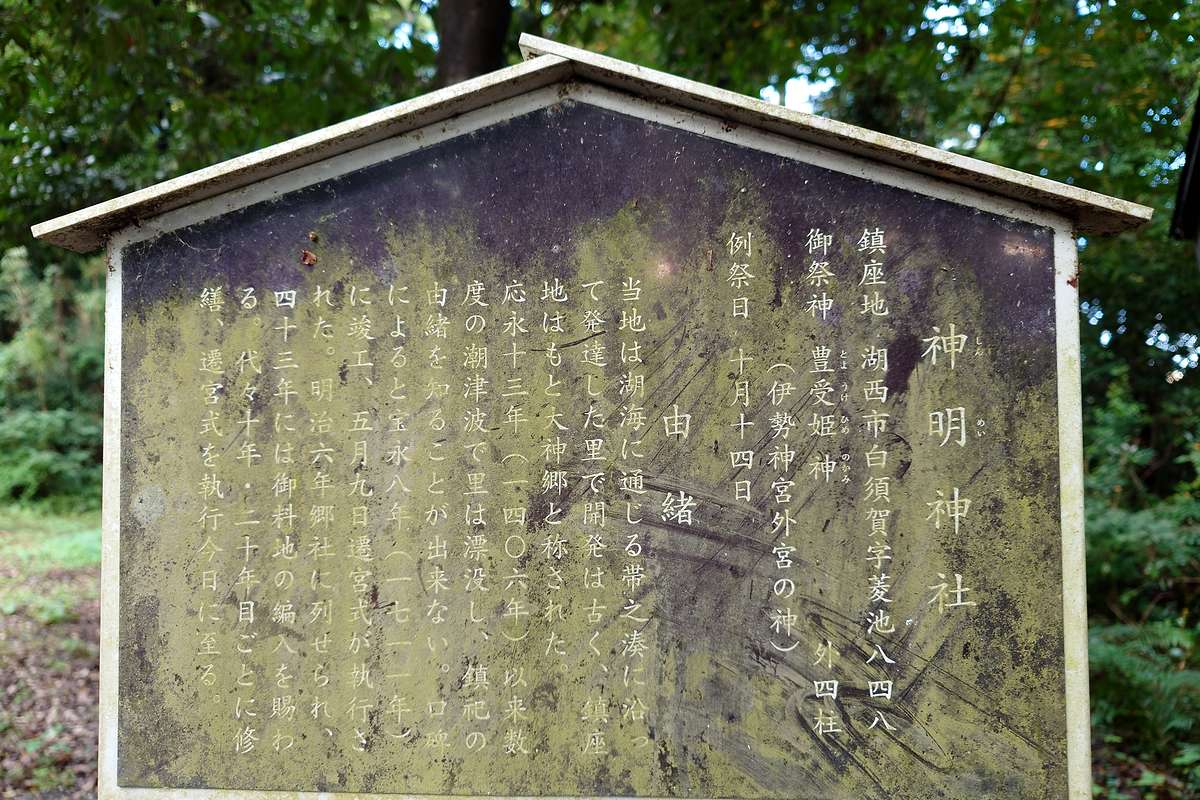 神明神社
しんめい
鎮座地 湖西市白須賀字菱池八四八
御祭神 豊受姫神 外四柱
とようけひめのかみ
(伊勢神宮外宮の神)
例祭日 十月十四日
由緒
当地は湖海に通じる帯之湊に沿っ
て発達した里で開発は古く、鎮座
地はもと大神郷と称された。
応永十三年(一四〇六年)以来数
度の潮津波で里は漂没し、鎮祀の
由緒を知ることが出来ない。口碑
によると宝永八年(一七一一年)
に竣工、五月九日遷宮式が執行さ
れた。明治六年郷社に列せられ、
四十三年には御料地の編入を賜わ
る。代々十年・二十年目ごとに修
繕、遷宮式を執行今日に至る。